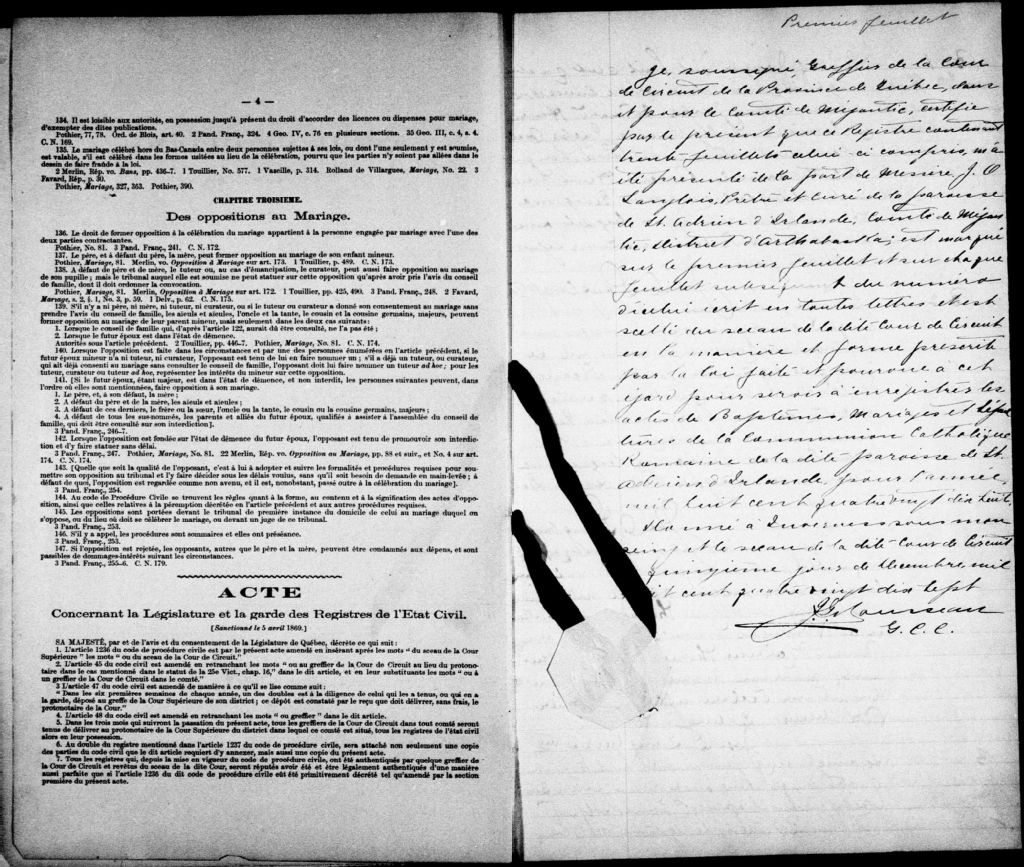 — 4 —
134. Il est loisible aux autorités, en possession jusqu'à présent du droit d'accorder des licences ou dispenses pour mariage,
d'exempter des dites publications.
Pothier, 77, 78. Ord. de Blois, art. 40. 2 Pand. Franç., 324. 4 Geo. IV, c. 76 en plusieurs sections. 35 Geo. III, c. 4, s. 4.
C. N. 169.
135. Le mariage célébré hors du Bas-Canada entre deux personnes sujettes à ses lois, ou dont l'une seulement y est soumise,
est valable, s'il est célébré dans les formes usitées au lieu de la célébration, pourvu que les parties n'y soient pas allées dans le
dessein de faire fraude à la loi.
2 Merlin, Rép. vo. Bans, pp. 436-7. 1 Touillier, No. 577. 1 Vazeille, p. 314. Rolland de Villargues, Mariage, No. 22. 3
Favard, Rép., p. 30.
Pothier, Mariage, 327, 363. Pothier, 390.
CHAPITRE TROISIEME.
Des oppositions au Mariage.
136. Le droit de former opposition à la célébration du mariage appartient à la personne engagée par mariage avec l'une des
deux parties contractantes.
Pothier, No. 81. 3 Pand. Franç., 241. C. N. 172.
137. Le père, et à défaut du père, la mère, peut former opposition au mariage de son enfant mineur.
Pothier, Mariage, 81. Merlin, vo. Opposition à Mariage sur art. 173. 1 Touillier, p. 489. C. N. 173.
138. A défaut de père et de mère, le tuteur ou, au cas d'émancipation, le curateur, peut aussi faire opposition au mariage
de son pupille; mais le tribunal auquel elle est soumise ne peut statuer sur cette opposition qu'après avoir pris l'avis du conseil
de famille, dont il doit ordonner la convocation.
Pothier, Mariage, 81. Merlin, Opposition à Mariage sur art. 172. 1 Touillier, pp. 425, 490. 3 Pand. Franç., 248. 2 Favard,
Mariage, s. 2, §. 1, No. 3, p. 59. 1 Delv., p. 62. C. N. 175.
139. S'il n'y a ni père, ni mère, ni tuteur, ni curateur, ou si le tuteur ou curateur a donné son consentement au mariage sans
prendre l'avis du conseil de famille, les aïeuls et aïeules, l'oncle et la tante, le cousin et la cousine germains, majeurs, peuvent
former opposition au mariage de leur parent mineur, mais seulement dans les deux cas suivants:
1. Lorsque le conseil de famille qui, d'après l'article 122, aurait dû être consulté, ne l'a pas été;
2. Lorsque le futur époux est dans l'état de démence.
Autorités sous l'article précédent. 2 Touillier, pp. 446-7. Pothier, Mariage, No. 81. C. N. 174.
140. Lorsque l'opposition est faite dans les circonstances et par une des personnes énumérées en l'article précédent, si le
futur époux mineur n'a ni tuteur, ni curateur, l'opposant est tenu de lui en faire nommer un; s'il a déjà un tuteur, ou curateur,
qui ait déjà consenti au mariage sans consulter le conseil de famille, l'opposant doit lui faire nommer un tuteur ad hoc; pour les
tuteur, curateur ou tuteur ad hoc, représenter les intérêts du mineur sur cette opposition.
141. [Si le futur époux, étant majeur, est dans l'état de démence, et non interdit, les personnes suivantes peuvent, dans
l'ordre où elles sont mentionnées, faire opposition à son mariage.
1. Le père, et, à son défaut, la mère;
2. A défaut du père et de la mère, les aïeuls et aïeules;
3. A défaut de ces derniers, le frère ou la sœur, l'oncle ou la tante, le cousin ou la cousine germains, majeurs;
4. A défaut de tous les sus-nommés, les parents et alliés du futur époux, qualifiés à assister à l'assemblée du conseil de
famille, qui doit être consulté sur son interdiction].
3 Pand. Franç., 246-7.
142. Lorsque l'opposition est fondée sur l'état de démence du futur époux, l'opposant est tenu de promouvoir son interdic-
tion et d'y faire statuer sans délai.
3 Pand. Franç., 247. Pothier, Mariage, No. 81. 22 Merlin, Rép. vo. Opposition au Mariage, pp. 88 et suiv., et No. 4 sur art.
174. C. N. 174.
143. [Quelle que soit la qualité de l'opposant, c'est à lui à adopter et suivre les formalités et procédures requises pour sou-
mettre son opposition au tribunal et l'y faire décider sous les délais voulus, sans qu'il soit besoin de demande en main-levée; à
défaut de quoi, l'opposition est regardée comme non avenu, et il est, nonobstant, passé outre à la célébration du mariage].
3 Pand. Franç., 254.
144. Au code de Procédure Civile se trouvent les règles quant à la forme, au contenu et à la signification des actes d'oppo-
sition, ainsi que celles relatives à la péremption décrétée en l'article précédent et aux autres procédures requises.
145. Les oppositions sont portées devant le tribunal de première instance du domicile de celui au mariage duquel on
s'oppose, ou du lieu où doit se célébrer le mariage, ou devant un juge de ce tribunal.
3 Pand. Franç., 253.
146. S'il y a appel, les procédures sont sommaires et elles ont préséance.
3 Pand. Franç., 253.
147. Si l'opposition est rejetée, les opposants, autres que le père et la mère, peuvent être condamnés aux dépens, et sont
passibles de dommages-intérêts suivant les circonstances.
3 Pand. Franç., 255-6. C. N. 179.
ACTE
Concernant la Législature et la garde des Registres de l'Etat Civil.
[Sanctionné le 5 avril 1869.]
SA MAJESTÉ, par et de l'avis et du consentement de la Législature de Québec, décrète ce qui suit:
1. L'article 1236 du code de procédure civile est par le présent acte amendé en insérant après les mots "du sceau de la Cour
Supérieure" les mots "ou du sceau de la Cour de Circuit."
2. L'article 45 du code civil est amendé en retranchant les mots "ou au greffier de la Cour de Circuit au lieu du protono-
taire dans le cas mentionné dans le statut de la 25e Vict., chap. 16," dans le dit article, et en leur substituants les mots "ou à
un greffier de la Cour de Circuit dans le comté."
3 L'article 47 du code civil est amendé de manière à ce qu'il se lise comme suit:
"Dans les six premières semaines de chaque année, un des doubles est à la diligence de celui qui les a tenus, ou qui en a
la garde, déposé au greffe de la Cour Supérieure de son district; ce dépôt est constaté par le reçu que doit délivrer, sans frais, le
protonotaire de la Cour."
4. L'article 48 du code civil est amendé en retranchant les mots "ou greffier" dans le dit article.
5. Dans les trois mois qui suivront la passation du présent acte, tous les greffiers de la Cour de Circuit dans tout comté seront
tenus de délivrer au protonotaire de la Cour Supérieure du district dans lequel ce comté est situé, tous les registres de l'état civil
alors en leur possession.
6. Au double du registre mentionné dans l'article 1237 du code de procédure civile, sera attaché non seulement une copie
des parties du code civil que le dit article requiert d'y annexer, mais aussi une copie du présent acte.
7. Tous les registres qui, depuis la mise en vigueur du code de procédure civile, ont été authentiqués par quelque greffier de
la Cour de Circuit et revêtus du sceau de la dite Cour, seront réputés avoir été et être légalement authentiqués d'une manière
aussi parfaite que si l'article 1236 du dit code de procédure civile eût été primitivement décrété tel qu'amendé par la section
première du présent acte.
Premier feuillet
Je, soussigné, Greffier de la Cour
de Circuit de la Province de Québec, dans
et pour le Comté de Mégantic, certifie
par le présent que ce Registre contenant
trente feuillets celui-ci compris, m'a
été présenté de la part de Messire, J. O
Langlois, Prêtre et curé de la paroisse
de St. Adrien d'Irlande, Comté de Mégan
tic, District d'Arthabaska; est marqué
sur le premier feuillet et sur chaque
feuillet subséquent du numéro
d'icelui écrit en toutes lettres et est
scellé du sceau de la dite Cour de Circuit
en la manière et forme prescrite
par la loi faite et pourvue à cet
égard pour servir à enregistrer les
actes de Baptêmes, Mariages et Sépul
tures de la Communion Catholique
Romaine de la dite paroisse de St.
Adrien d'Irlande, pour l'année
mil huit cent quatre vingt dix huit.
Donné à Inverness sous mon
seing et le sceau de la dite Cour de Circuit
quinzième jour de Décembre mil
huit cent quatre vingt dix sept
Rousseau
G. C. C.